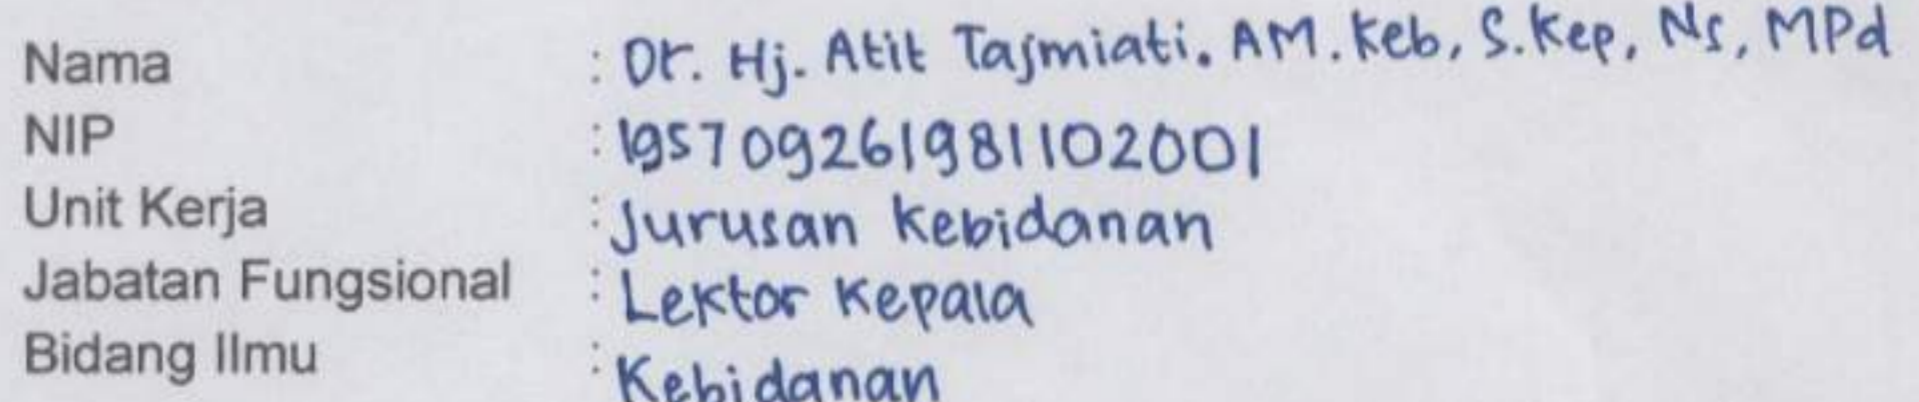 Nama : Dr. Hj. Atit Tasmiati. AM. Keb, S.Kep, Ns, MPd
NIP : 195709261981102001
Unit Kerja : Jurusan Kebidanan
Jabatan Fungsional : Lektor Kepala
Bidang Ilmu : Kebidanan